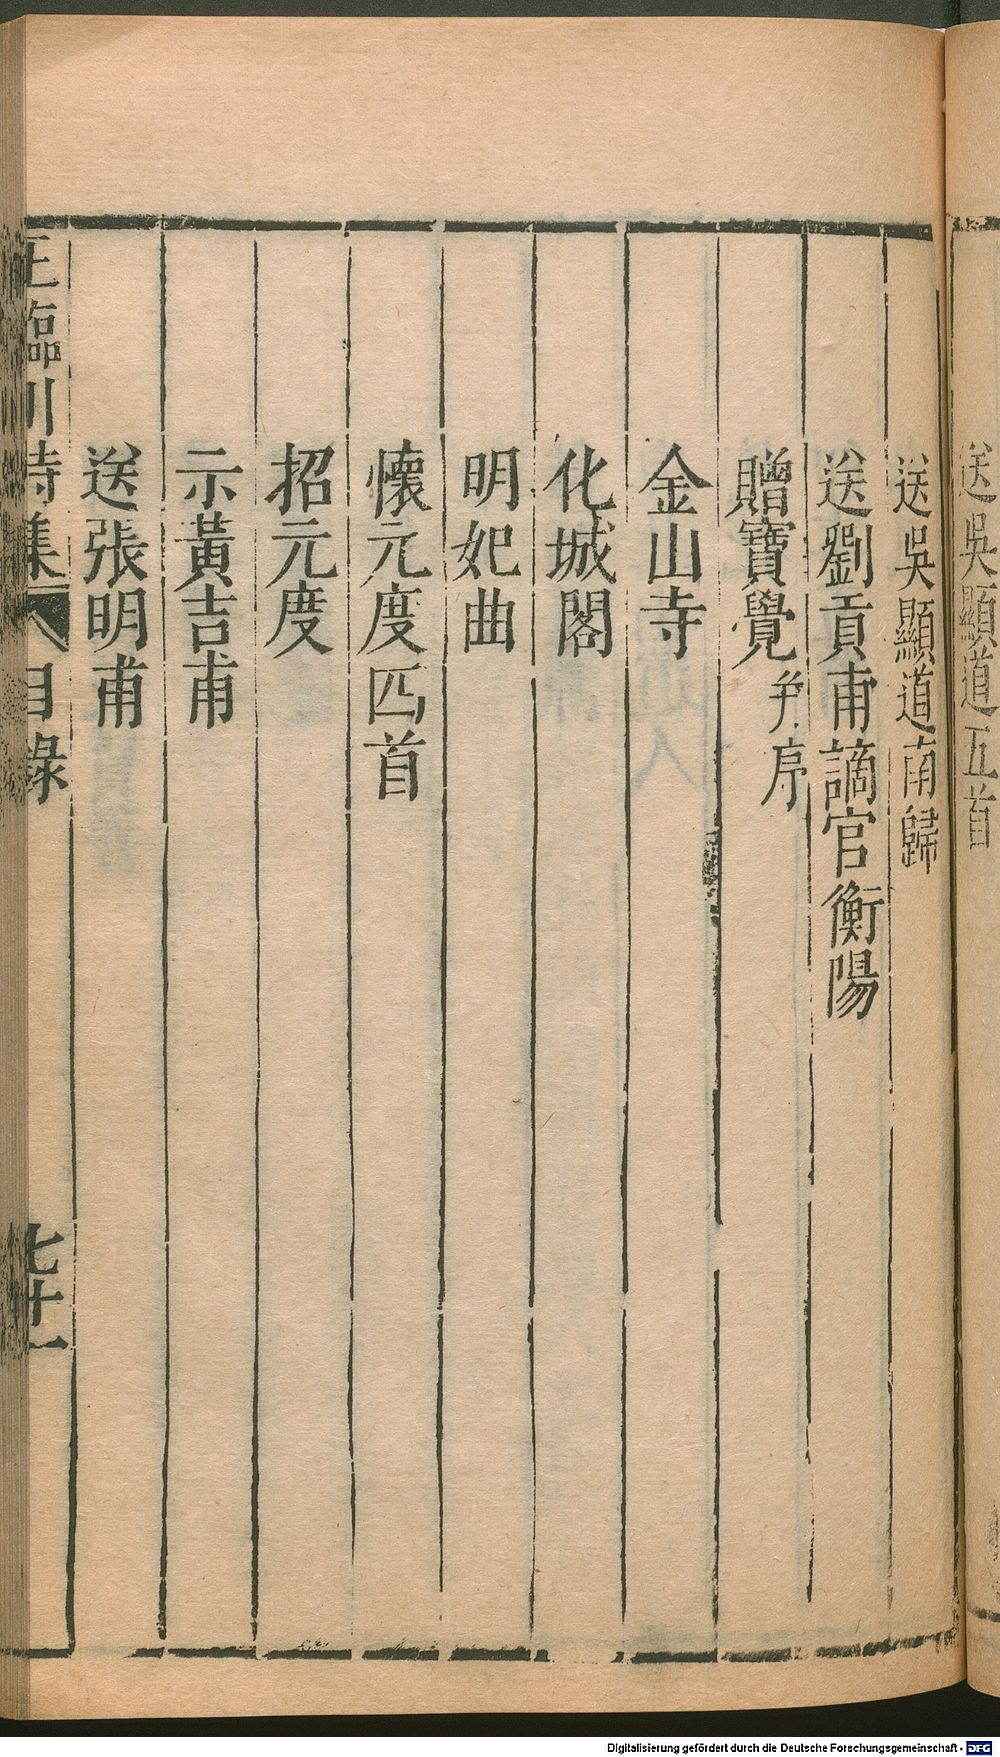 送吳顯道五首
送吳顯道南歸
送劉貢甫謫官衡陽
贈寶覺并序
金山寺
化城閣
明妃曲
懷元度四首
招元度
示黃吉甫
送張明甫
王臨川詩集 目錄 七十一
Digitalisierung gefördert durch die Deutsche Forschungsgemeinschaft - DFG